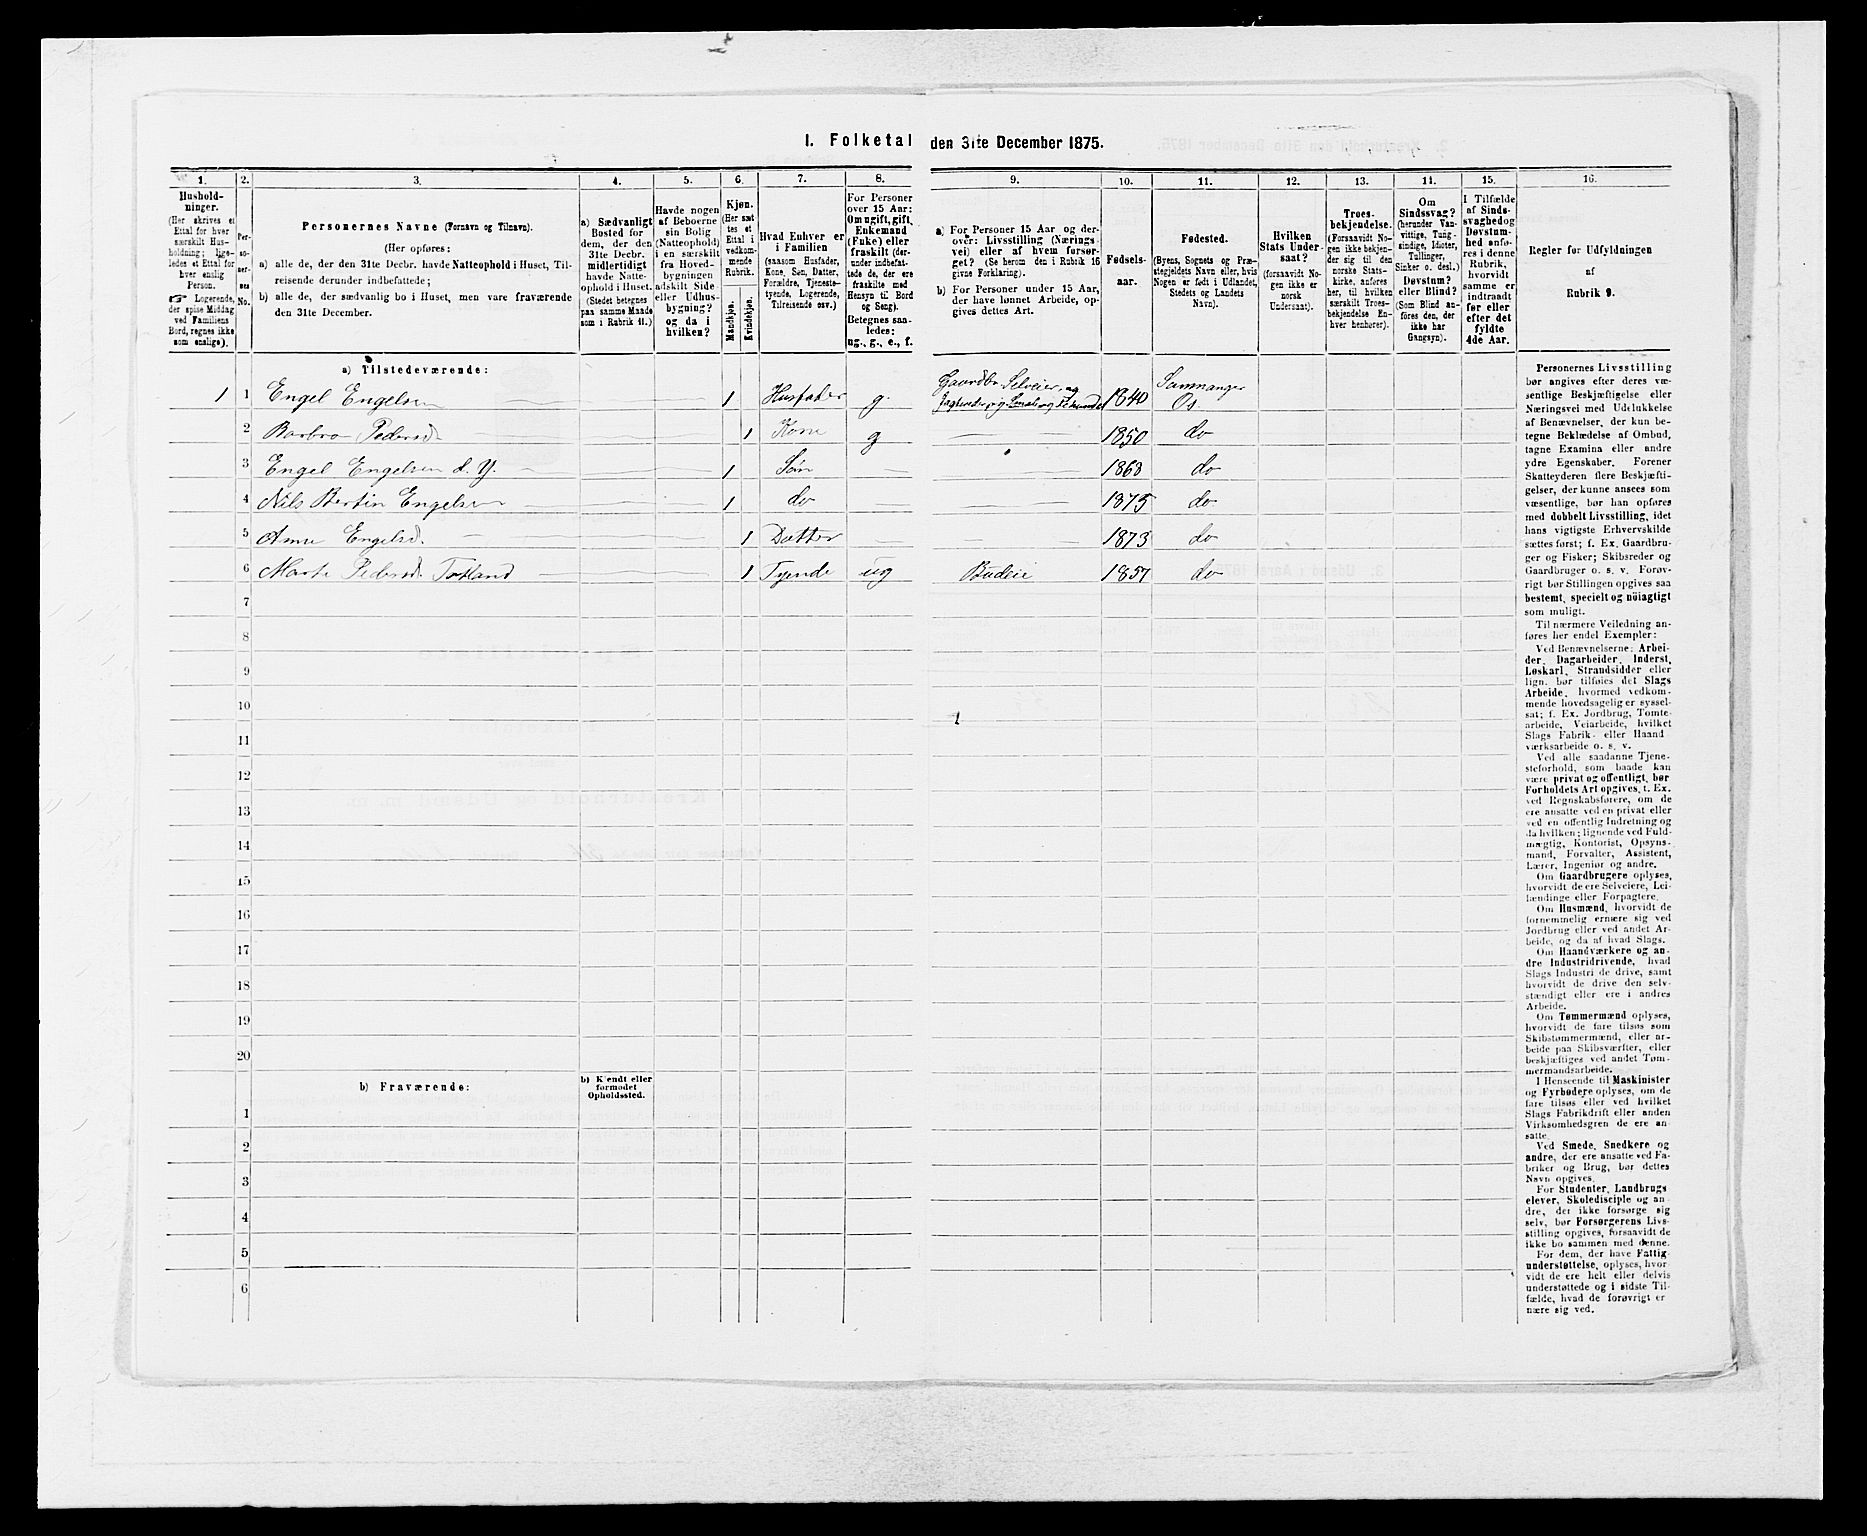 I. Folketal den 31te December 1875.
1. 2. 3. 4. 5. 6. 7. 8. 9. 10. 11. 12. 13. 14. 15. 16.
Hushold-
ninger.
(Her skrives et
Ettal for hver
særskilt Hus-
holdning; lige-
ledes et Ettal for
hver enslig
Person.
☞ Logerende,
der spise Middag
ved Familiens
Bord, regnes ikke
som enslige).
Per-
so-
ner-
nes
No.
Personernes Navne (Fornavn og Tilnavn).
(Her opføres:
a) alle de, der den 31te Decbr. havde Natteophold i Huset, Til-
reisende derunder indbefattede;
b) alle de, der sædvanlig bo i Huset, men vare fraværende
den 31te December.
a) Sædvanligt
Bosted for
dem, der den
31te Decbr.
midlertidigt
havde Natte-
ophold i Huset.
(Stedet betegnes
paa samme Maade
som i Rubrik 11.)
Havde nogen
af Beboerne
sin Bolig
(Natteophold)
i en særskilt
fra Hoved-
bygningen
adskilt Side-
eller Udhus-
bygning?
og da i
hvilken?
Kjøn.
(Her sæt
tes et
Ettal i
vedkom-
mende
Rubrik.
Mandkjøn.
Kvindekjøn.
Hvad Enhver er
i Familien
(saasom Husfader,
Kone, Søn, Datter,
Forældre, Tjeneste-
tyende, Logerende,
Tilreisende osv.)
For Personer
over 15 Aar:
Om ugift, gift,
Enkemand
(Enke) eller
fraskilt (der-
under indbefat-
tede de, der ere
fraskilte med
Hensyn til Bord
og Seng).
Betegnes saa-
ledes:
ug., g., e., f.
a) For Personer 15 Aar og der-
over: Livsstilling (Nærings-
vei) eller af hvem forsør-
get? (Se herom den i Rubrik 16
givne Forklaring).
b) For Personer under 15 Aar,
der have lønnet Arbeide, op-
gives dettes Art.
Fødsels-
aar.
Fødested.
(Byens, Sognets og Præ-
stegjeldets Navn eller, hvis
Nogen er født i Udlandet,
Stedets og Landets
Navn).
Hvilken
Stats Under-
saat?
(forsaavidt No-
gen ikke er
norsk
Undersaat).
Troes-
bekjendelse.
(Forsaavidt No-
gen ikke bekjen-
der sig til den
norske Stats-
kirke, anføres
her, til hvilken
særskilt Troes-
bekjendelse En-
hver henhører).
Om
Sindssvag?
(herunder Van-
vittige, Tung-
sindige, Idioter,
Tullinger,
Sinker o. desl.)
Døvstum?
eller Blind?
(Som Blind an-
føres den, der
ikke har
Gangsyn).
I Tilfælde
af Sinds-
svaghed og
Døvstum-
hed anfø-
res i denne
Rubrik,
hvorvidt
samme er
indtraadt
før eller
efter det
fyldte
4de Aar.
Regler før Udfyldningen
af
Rubrik 9.
a) Tilstedeværende:
1 1 Engel Engelsen 1 Husfader g. Gaardbr. Selveier og 1840 Samnanger Os.
2 Barbro Pedersd. 1 Kone g 1850 do
3 Engel Engelsen d. Y. 1 Søn 1868 do
4 Nils Bertin Engelsen 1 do 1875 do
5 Anne Engelsd. 1 Datter 1873 do
6 Marte Pedersd. Totland 1 Tyende ug Budeie 1857 do
7
8
9
10
11
12
13
14
15
16
17
18
19
20
b) Fraværende:
b) Kjendt eller
formodet
Opholdssted.
1
2
3
4
5
6
Personernes Livsstilling
bør angives efter deres væ-
sentlige Beskjæftigelse eller
Næringsvei med Udelukkelse
af Benævnelser, der kun be-
tegne Beklædelse af Ombud,
tagne Examina eller andre
ydre Egenskaber. Forener
Skatteyderen flere Beskjæfti-
gelser, der kunne ansees som
væsentlige, bør han opføres
med dobbelt Livsstilling, idet
hans vigtigste Erhvervskilde
sættes først; f. Ex. Gaardbru-
ger og Fisker; Skibsreder og
Gaardbruger o. s. v. Forøv-
rigt bør Stillingen opgives saa
bestemt, specielt og nöiagtigt
som muligt.
Til nærmere Veiledning an-
føres her endel Exempler:
Ved Benævnelserne: Arbei-
der, Dagarbeider, Inderst,
Løskarl, Strandsidder eller
lign. bør tilføies det Slags
Arbeide, hvormed vedkom-
mende hovedsagelig er syssel-
sat; f. Ex. Jordbrug, Tomte-
arbeide, Veiarbeide, hvilket
Slags Fabrik- eller Haand
værksarbeide o. s. v.
Ved alle saadanne Tjene-
steforhold, som baade kan
være privat og offentligt, bør
Forholdets Art opgives, t. Ex.
ved Regnskabsførere, om de
ere ansatte ved en privat eller
ved en offentlig Indretning og
da hvilken; lignende ved Fuld-
mægtig, Kontorist, Opsyns-
mand, Forvalter, Assistent,
Lærer, Ingeniør og andre.
Om Gaardbrugere oplyses,
hvorvidt de ere Selveiere, Lei-
lændinge eller Forpagtere.
Om Husmænd, hvorvidt de
fornemmelig ernære sig ved
Jordbrug eller ved andet Ar-
beide, og da af hvad Slags.
Om Haandværkere og an-
dre Industridrivende, hvad
Slags Industri de drive, samt
hvorvidt de drive den selv-
stændigt eller ere i andres
Arbeide.
Om Tømmermænd oplyses,
hvorvidt de fare tilsøs som
Skibstømmermænd, eller ar-
beide paa Skibsværfter, eller
beskjæftiges ved andet Tøm-
mermandsarbeide.
I Henseende til Maskinister
og Fyrbødere oplyses, om de
fare tilsøs eller ved hvilket
Slags Fabrikdrift eller anden
Virksomhedsgren de ere an-
satte.
Ved Smede, Snedkere og
andre, der ere ansatte ved Fa-
briker og Brug, bør dettes
Navn opgives.
For Studenter, Landbrugs
elever, Skoledisciple og an-
dre, der ikke forsørge sig
selv, bør Forsørgerens Livs-
stilling opgives, forsaavidt de
ikke bo sammen med denne.
For dem, der have Fattig-
understøttelse, oplyses, hvor-
vidt de ere helt eller delvis
understøttede og i sidste Til-
fælde, hvad de forøvrigt er
nære sig ved.